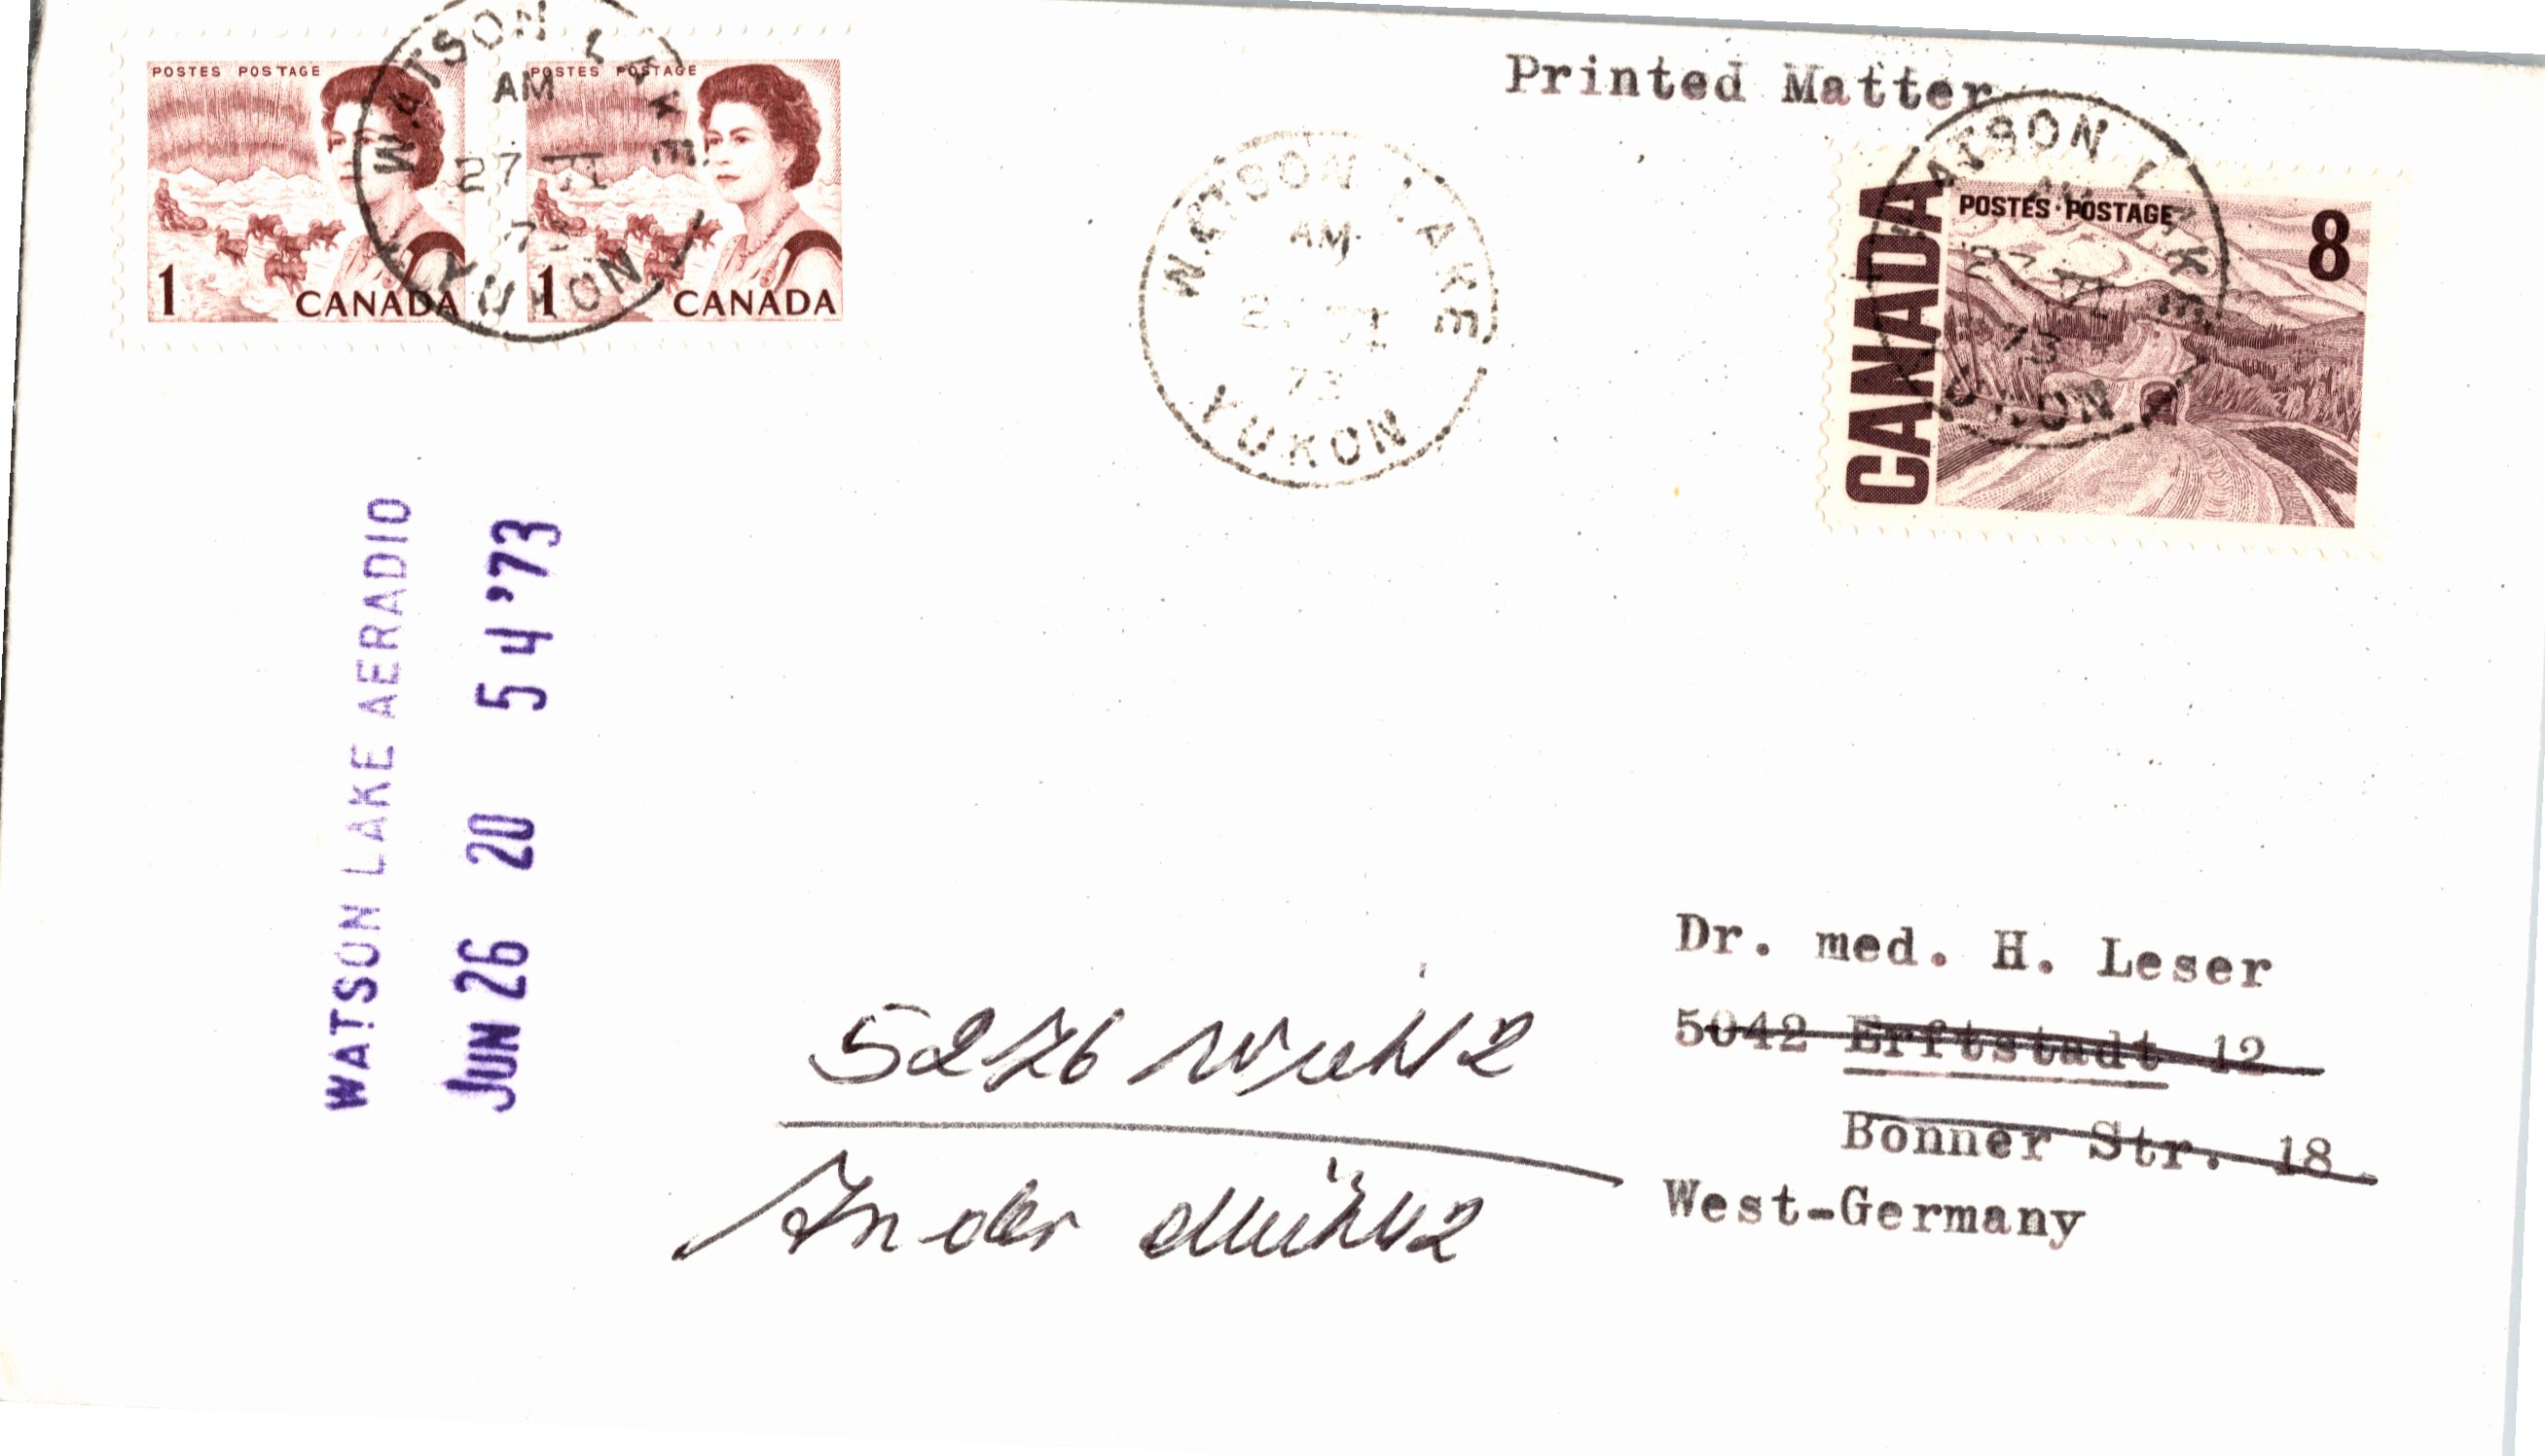 POSTES POSTAGE
1 CANADA
POSTES POSTAGE
1 CANADA
WATSON LAKE
AM
27 VI
73
YUKON
Printed Matter
WATSON LAKE
AM
73
YUKON
WATSON LAKE
AM
27 VI
73
YUKON
CANADA
POSTES·POSTAGE
8
WATSON LAKE AERADIO
JUN 26 20 54 '73
Dr. med. H. Leser
5042 Erftstadt 12
Bonner Str. 18
West-Germany
5276 Wiehl 2
In der Mühl 2